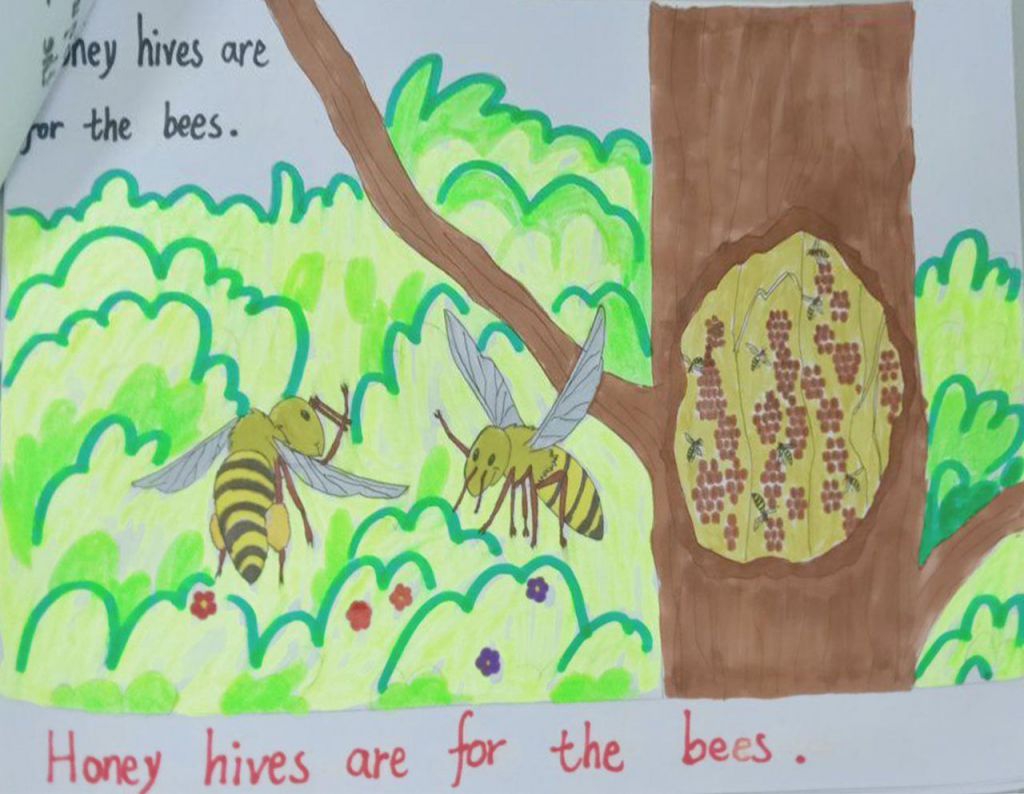 Honey hives are
for the bees.
Honey hives are for the bees.